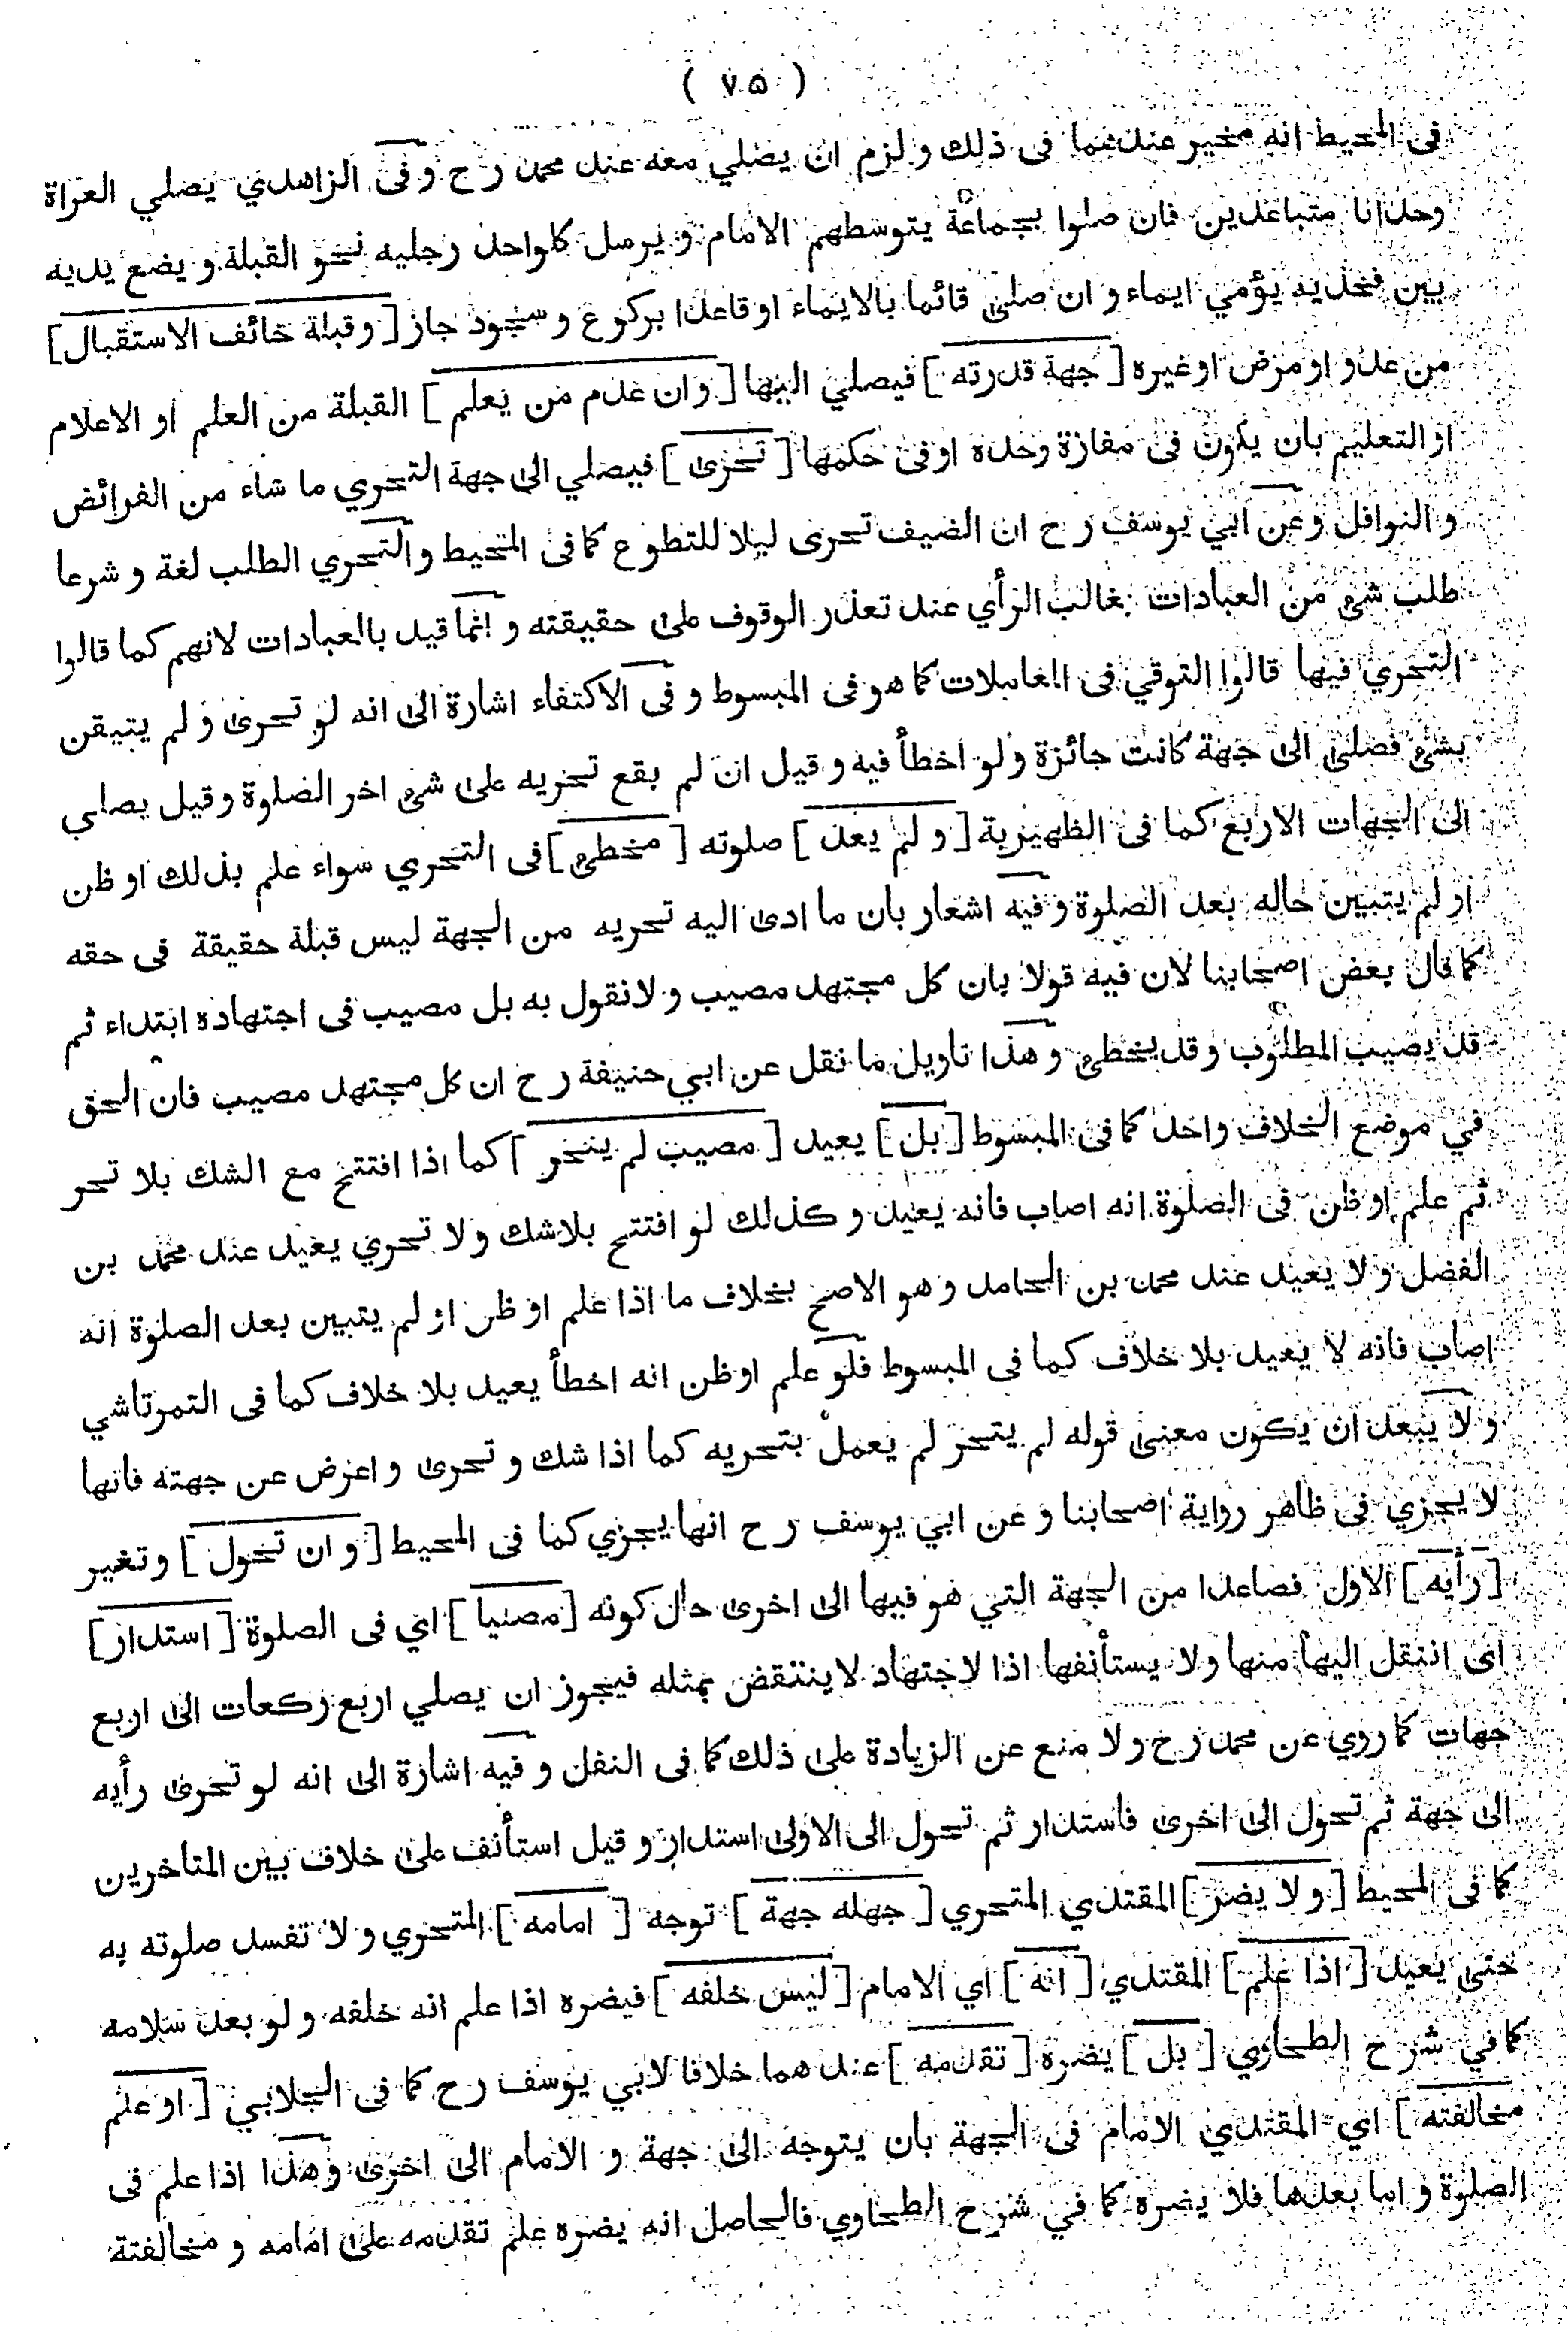 ( ۷۵ )
فى المحيط انه مخير عندهما فى ذلك و لزم ان يصلي معه عند محمد ر ح و فى الزاهدي يصلي العراة
وحدانا متباعدين فان صلوا بجماعة يتوسطهم الامام و يرسل كلواحد رجليه نحو القبلة و يضع يديه
بين فخذيه يؤمي ايماء و ان صلى قائما بالايماء او قاعدا بركوع و سجود جاز [ و قبلة خائف الاستقبال ]
من عدو او مرض او غيره [ جهة قدرته ] فيصلي اليها [ و ان عدم من يعلم ] القبلة من العلم او الاعلام
او التعليم بان يكون فى مفازة وحده او فى حكمها [ تحرى ] فيصلي الى جهة التحري ما شاء من الفرائض
و النوافل و عن ابي يوسف ر ح ان الضيف تحرى ليلا للتطوع كما فى المحيط و التحري الطلب لغة و شرعا
طلب شئ من العبادات بغالب الرأي عند تعذر الوقوف على حقيقته و انما قيد بالعبادات لانهم كما قالوا
التحري فيها قالوا التوقي فى المعاملات كما هو فى المبسوط و فى الاكتفاء اشارة الى انه لو تحرى و لم يتيقن
بشئ فصلى الى جهة كانت جائزة و لو اخطأ فيه و قيل ان لم يقع تحريه على شئ اخر الصلوة و قيل يصلي
الى الجهات الاربع كما فى الظهيرية [ و لم يعد ] صلوته [ مخطئ ] فى التحري سواء علم بذلك او ظن
او لم يتبين حاله بعد الصلوة و فيه اشعار بان ما ادى اليه تحريه من الجهة ليس قبلة حقيقة فى حقه
كما قال بعض اصحابنا لان فيه قولا بان كل مجتهد مصيب و لا نقول به بل مصيب فى اجتهاده ابتداء ثم
قد يصيب المطلوب و قد يخطئ و هذا تأويل ما نقل عن ابي حنيفة ر ح ان كل مجتهد مصيب فان الحق
في موضع الخلاف واحد كما فى المبسوط [ بل ] يعيد [ مصيب لم يتحر ] كما اذا افتتح مع الشك بلا تحر
ثم علم او ظن فى الصلوة انه اصاب فانه يعيد و كذلك لو افتتح بلا شك و لا تحري يعيد عند محمد بن
الفضل و لا يعيد عند محمد بن الحامد و هو الاصح بخلاف ما اذا علم او ظن او لم يتبين بعد الصلوة انه
اصاب فانه لا يعيد بلا خلاف كما فى المبسوط فلو علم او ظن انه اخطأ يعيد بلا خلاف كما فى التمرتاشي
و لا يبعد ان يكون معنى قوله لم يتحر لم يعمل بتحريه كما اذا شك و تحرى و اعرض عن جهته فانها
لا يجزي فى ظاهر رواية اصحابنا و عن ابي يوسف ر ح انها يجزي كما فى المحيط [ و ان تحول ] و تغير
[ رأيه ] الاول فصاعدا من الجهة التي هو فيها الى اخرى حال كونه [ مصليا ] اي فى الصلوة [ استدار ]
اى انتقل اليها منها و لا يستأنفها اذا لاجتهاد لا ينتقض بمثله فيجوز ان يصلي اربع ركعات الى اربع
جهات كما روي عن محمد ر ح و لا منع عن الزيادة على ذلك كما فى النفل و فيه اشارة الى انه لو تحرى رأيه
الى جهة ثم تحول الى اخرى فاستدار ثم تحول الى الاولى استدار و قيل استأنف على خلاف بين المتأخرين
كما فى المحيط [ و لا يضر ] المقتدي المتحري [ جهله جهة ] توجه [ امامه ] المتحري و لا تفسد صلوته به
حتى يعيد [ اذا علم ] المقتدي [ انه ] اي الامام [ ليس خلفه ] فيضره اذا علم انه خلفه و لو بعد سلامه
كما في شرح الطحاوي [ بل ] يضره [ تقدمه ] عندهما خلافا لابي يوسف ر ح كما فى الجلابي [ او علم
مخالفته ] اي المقتدي الامام فى الجهة بان يتوجه الى جهة و الامام الى اخرى و هذا اذا علم فى
الصلوة و اما بعدها فلا يضره كما في شرح الطحاوي فالحاصل انه يضره علم تقدمه على امامه و مخالفتة